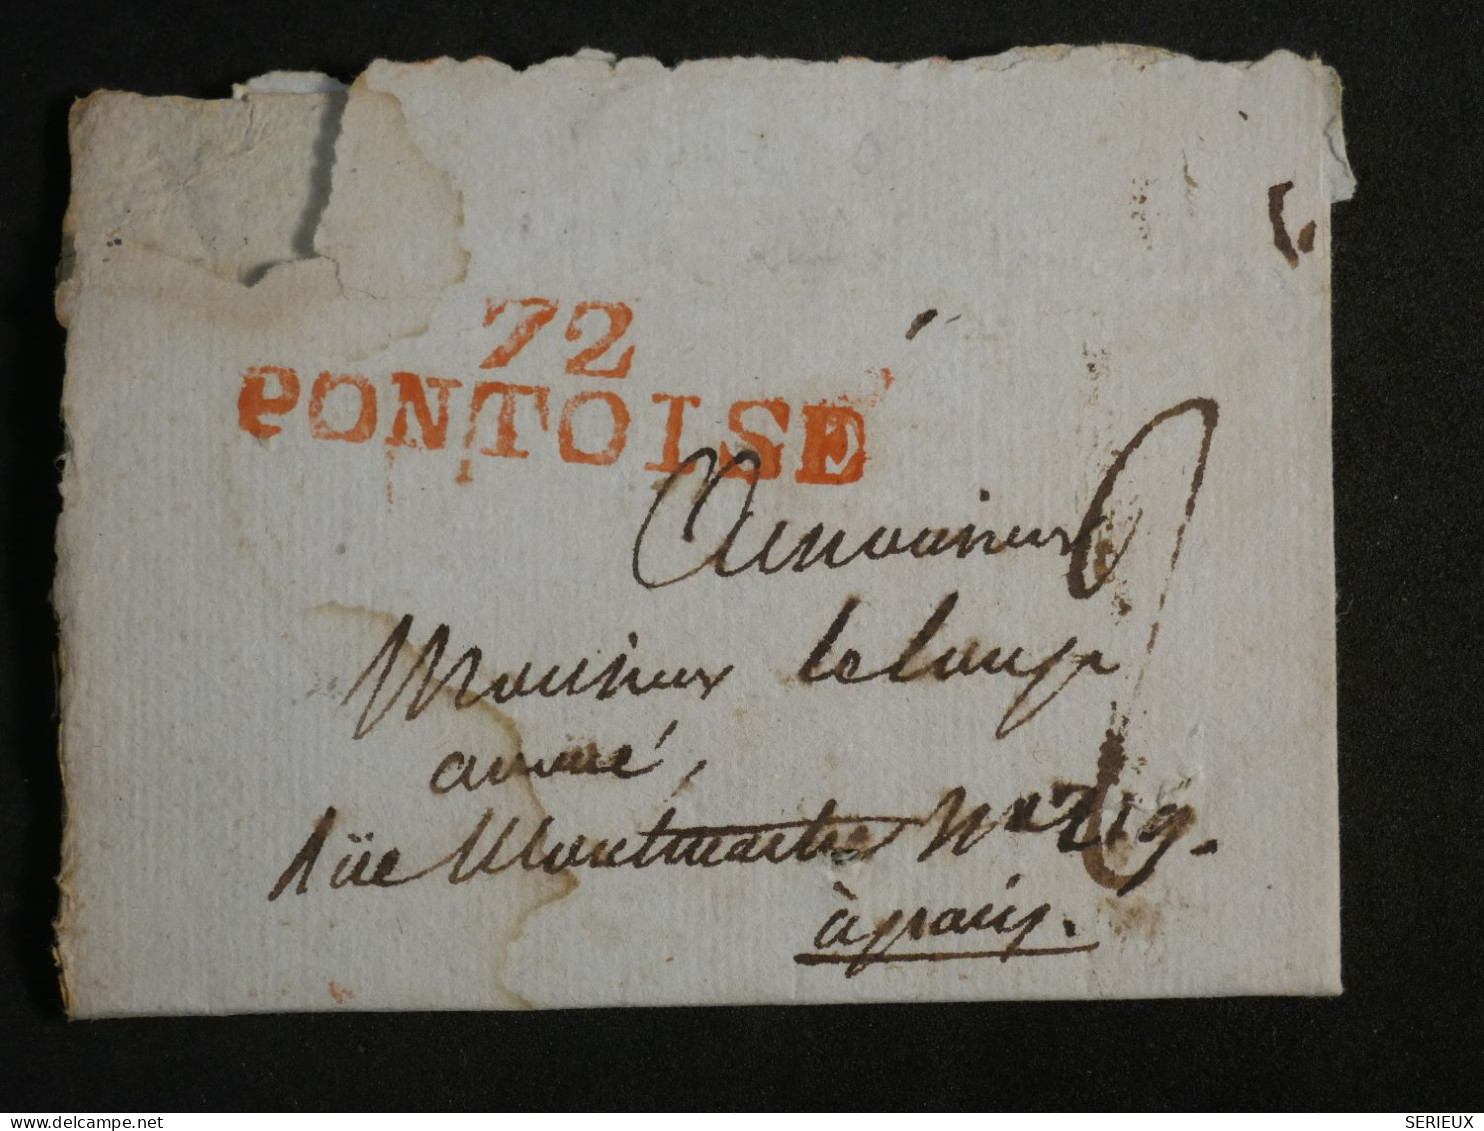 72
PONTOISE
A monsieur
Monsieur Leloup
avoué,
Rüe Montmartre N°
à paris.
www.delcampe.net
SERIEUX